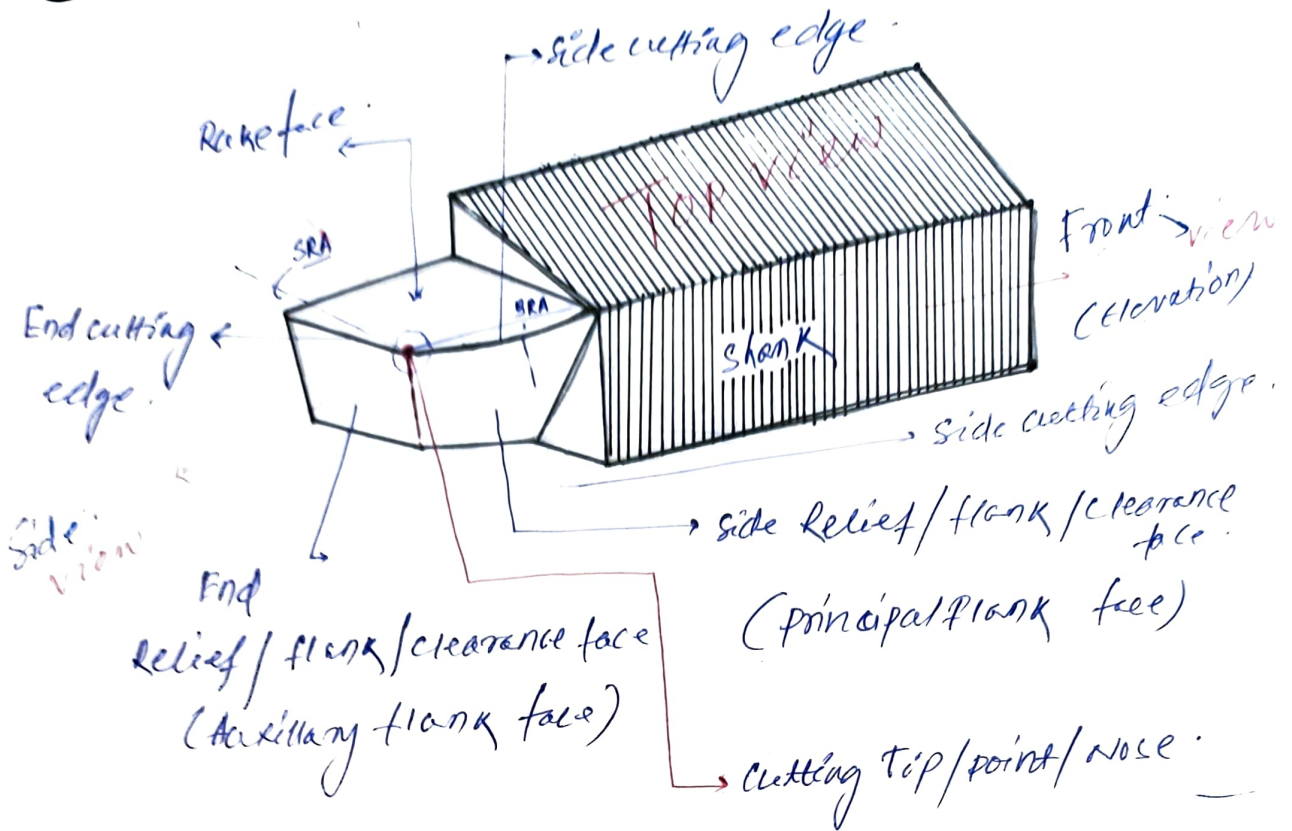 Side cutting edge
Rake face
Top view
SRA
BRA
Front view
(Elevation)
End cutting
edge.
Shank
Side cutting edge.
Side view
Side Relief/flank/clearance
face.
(principal flank face)
End
Relief/flank/clearance face
(Auxillary flank face)
Cutting Tip/point/Nose